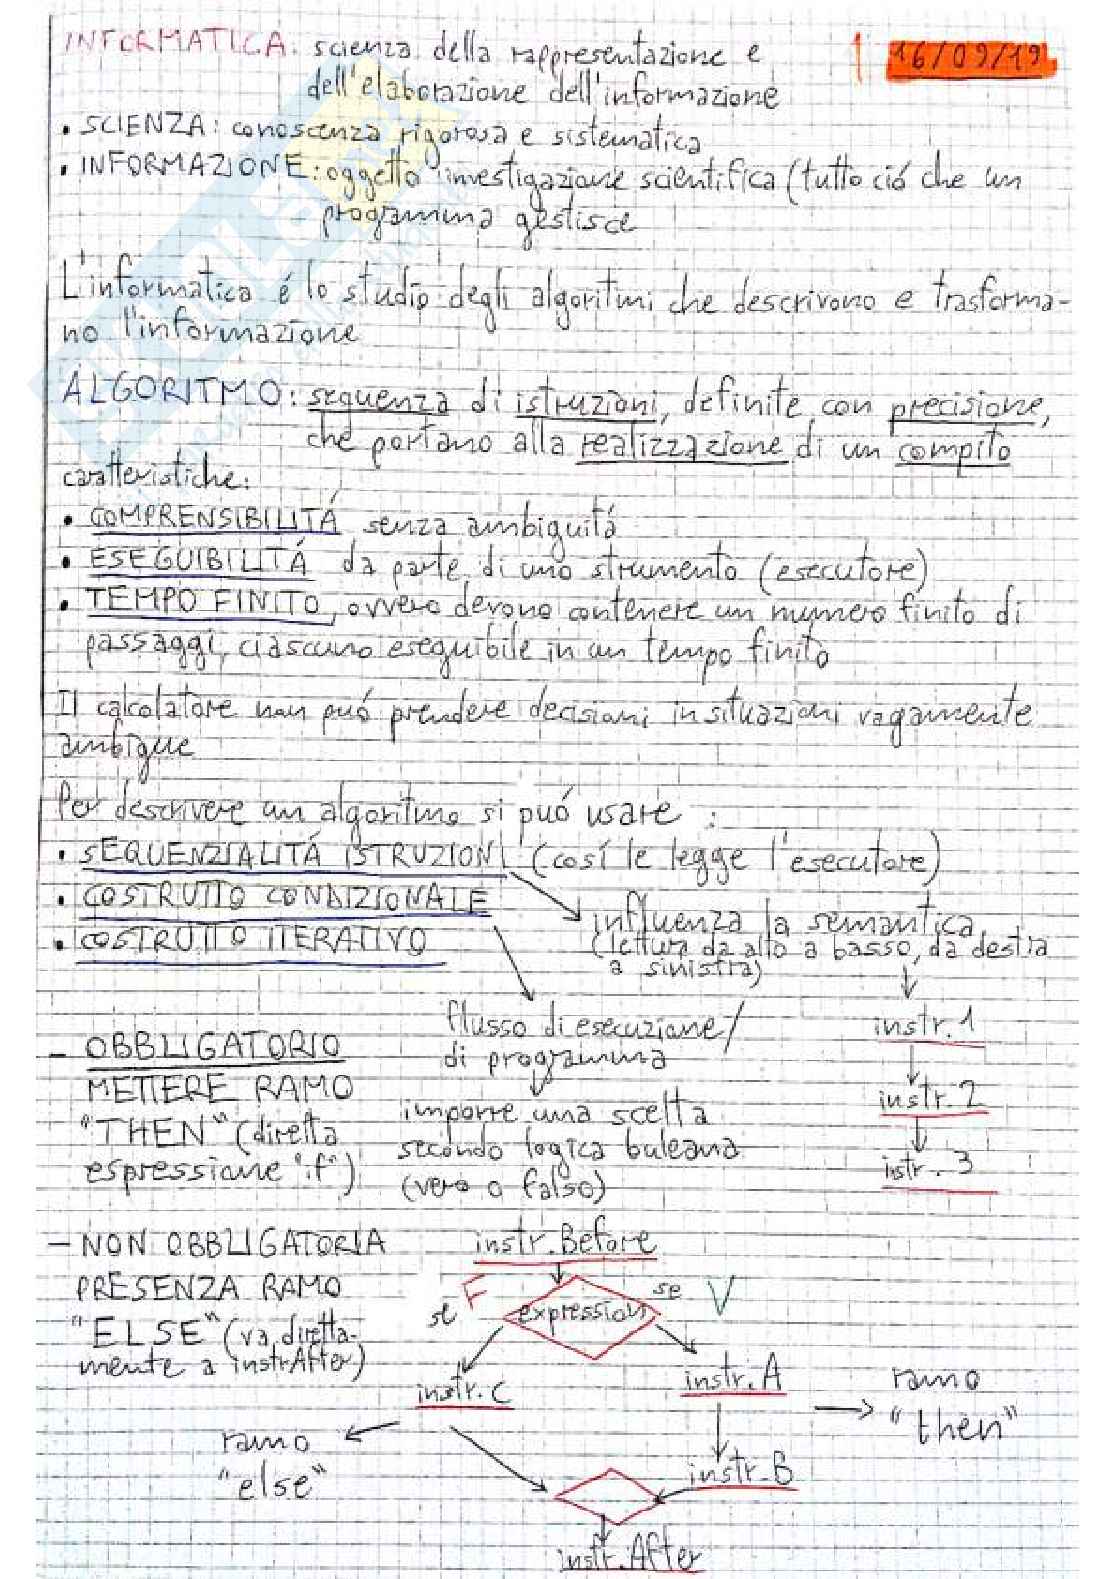 INFORMATICA: scienza della rappresentazione e
1 16/09/19
dell'elaborazione dell'informazione
• SCIENZA: conoscenza rigorosa e sistematica
• INFORMAZIONE: oggetto investigazione scientifica (tutto ció che un
programma gestisce
L'informatica é lo studio degli algoritmi che descrivono e trasforma-
no l'informazione
ALGORITMO: sequenza di istruzioni, definite con precisione,
che portano alla realizzazione di un compito
caratteristiche:
• COMPRENSIBILITÁ senza ambiguitá
• ESEGUIBILITÁ da parte di uno strumento (esecutore)
• TEMPO FINITO, ovvero devono contenere un numero finito di
passaggi, ciascuno eseguibile in un tempo finito
Il calcolatore non puó prendere decisioni in situazioni vagamente
ambigue
Per descrivere un algoritmo si puó usare :
• SEQUENZIALITÁ ISTRUZIONI (cosí le legge l'esecutore)
• COSTRUTTO CONDIZIONALE
• COSTRUTTO ITERATIVO
influenza la semantica
(lettura da alto a basso, da destra
a sinistra)
flusso di esecuzione/
di programma
imporre una scelta
secondo logica buleana
(vero o falso)
instr.1
instr.2
instr.3
- OBBLIGATORIO
METTERE RAMO
"THEN" (diretta
espressione "if")
- NON OBBLIGATORIA
PRESENZA RAMO
"ELSE" (va diretta-
mente a instrAfter)
instr.Before
se F
expression
se V
instr.C
instr.A
ramo
"then"
ramo
"else"
instr.B
instr.After